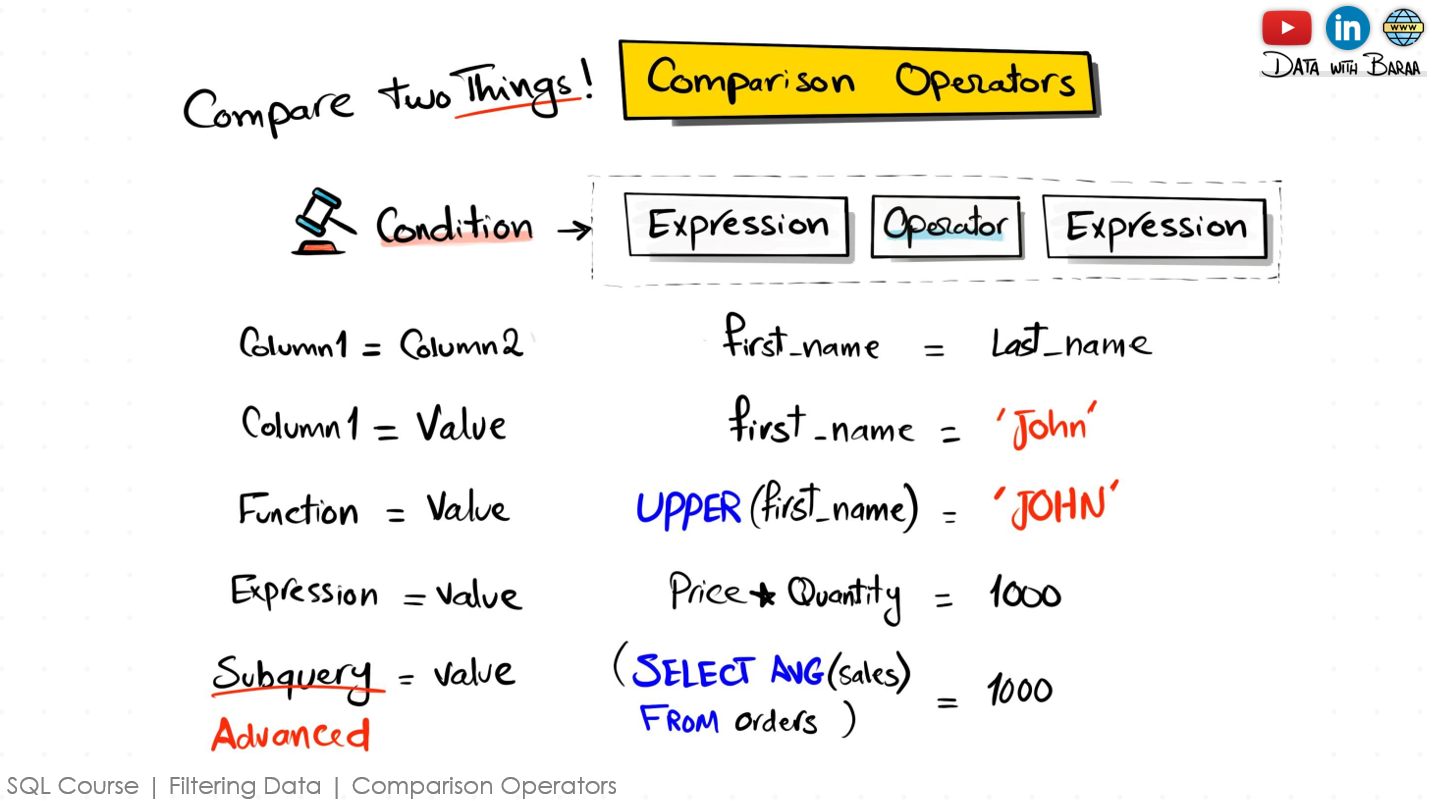 Compare two Things!
Comparison Operators
WWW
DATA WITH BARAA
Condition → Expression Operator Expression
Column1 = Column2
first_name = Last_name
Column1 = Value
first_name = 'John'
Function = Value
UPPER(first_name) = 'JOHN'
Expression = value
Price * Quantity = 1000
Subquery = value
Advanced
(SELECT AVG(sales)
FROM orders) = 1000
SQL Course | Filtering Data | Comparison Operators
in